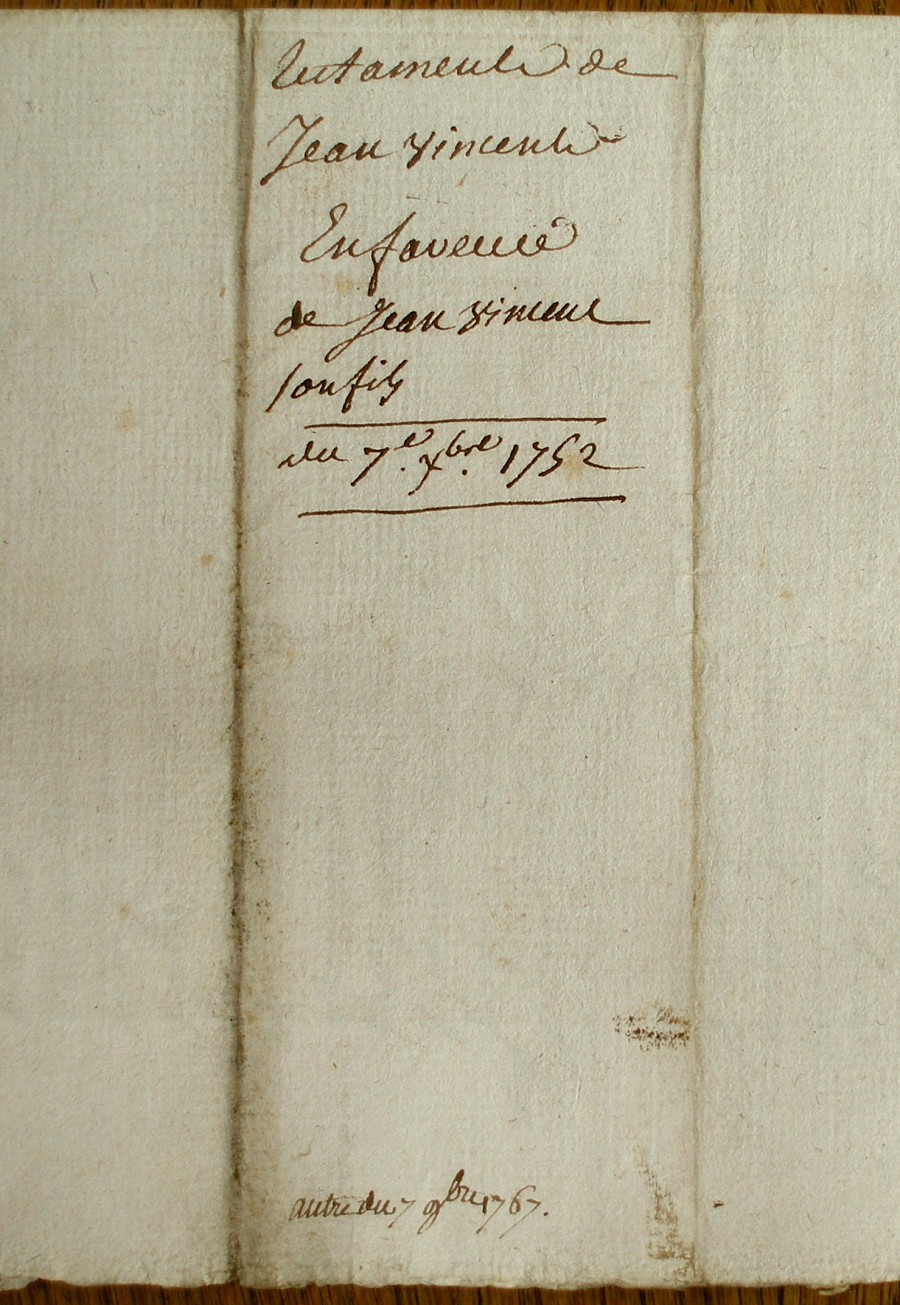 testament de
Jean Vincent
En faveur
de Jean Vincent
son fils
du 7e. Xbre. 1752
autre du 7 9bre 1767.